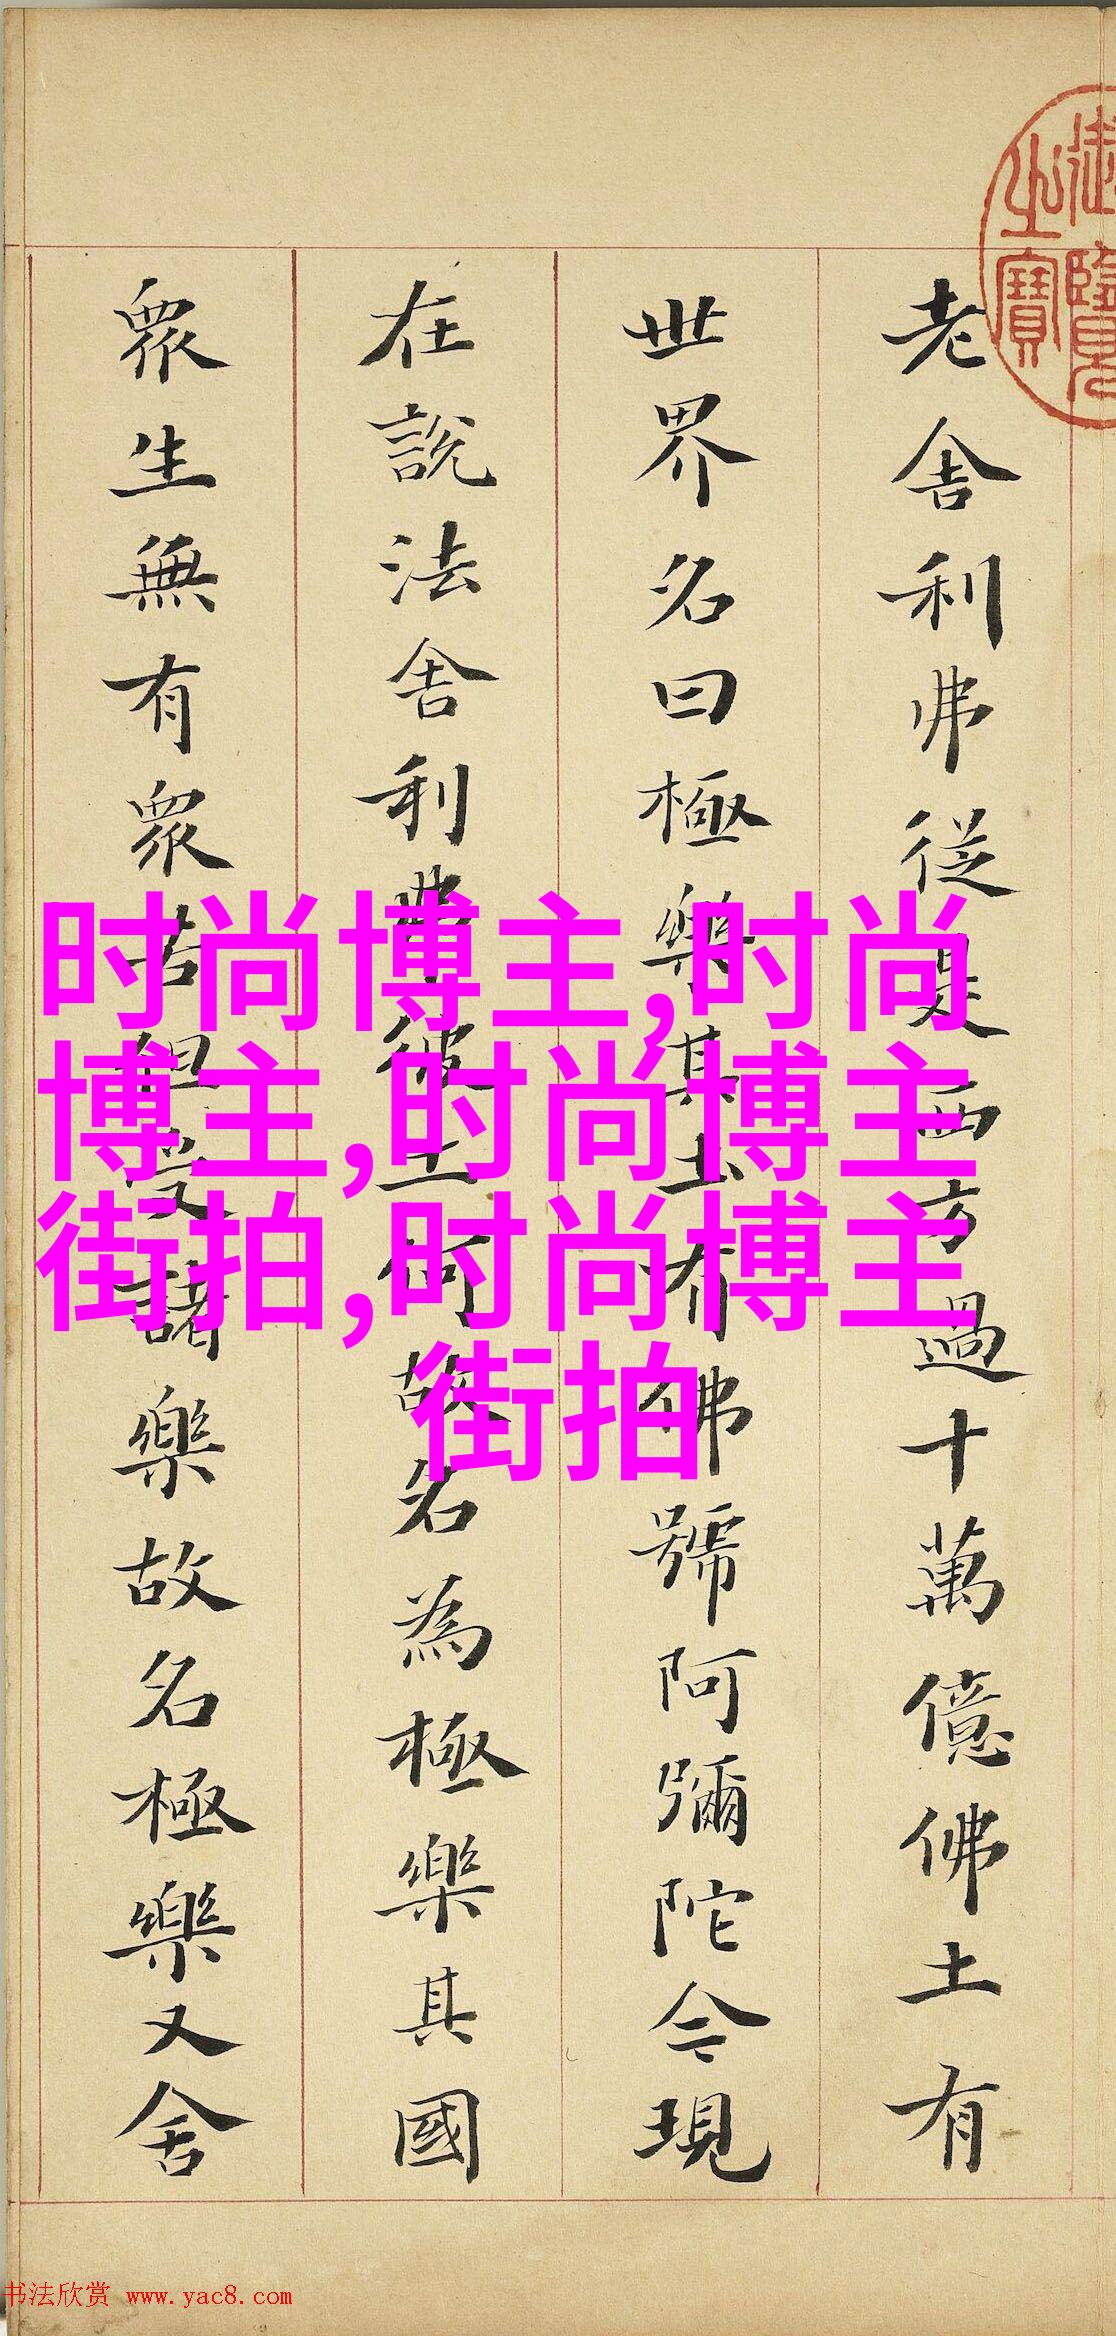 老舍利弗從是西方過十萬億佛土有
世界名曰極樂其土有佛號阿彌陀今現
在說法舍利弗彼土何故名為極樂其國
眾生無有眾苦但受諸樂故名極樂又舍
御覽之寶
时尚博主,时尚
博主,时尚博主
街拍,时尚博主
街拍
书法欣赏 www.yac8.com